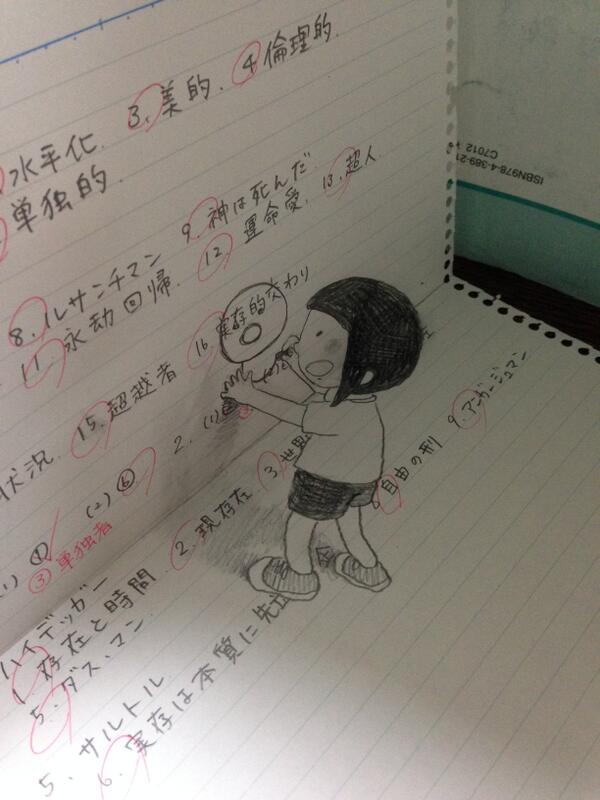 水平化 3. 美的. 4 倫理的.
単独的.
8. ルサンチマン 9. 神は死んだ.
11. 永劫回帰. 12 運命愛. 13. 超人
状況. 15. 超越者 16. 実存的交わり
(1) ④ (2) ⑥ 2. (1)
③ 単独者
ハイデッガー
1. 存在と時間 2. 現存在 3. 世界
5. ダス・マン.
5. サルトル
6. 実存は本質に先立 8 自由の刑 9. アンガージュマン
ISBN978-4-389-21
C7012